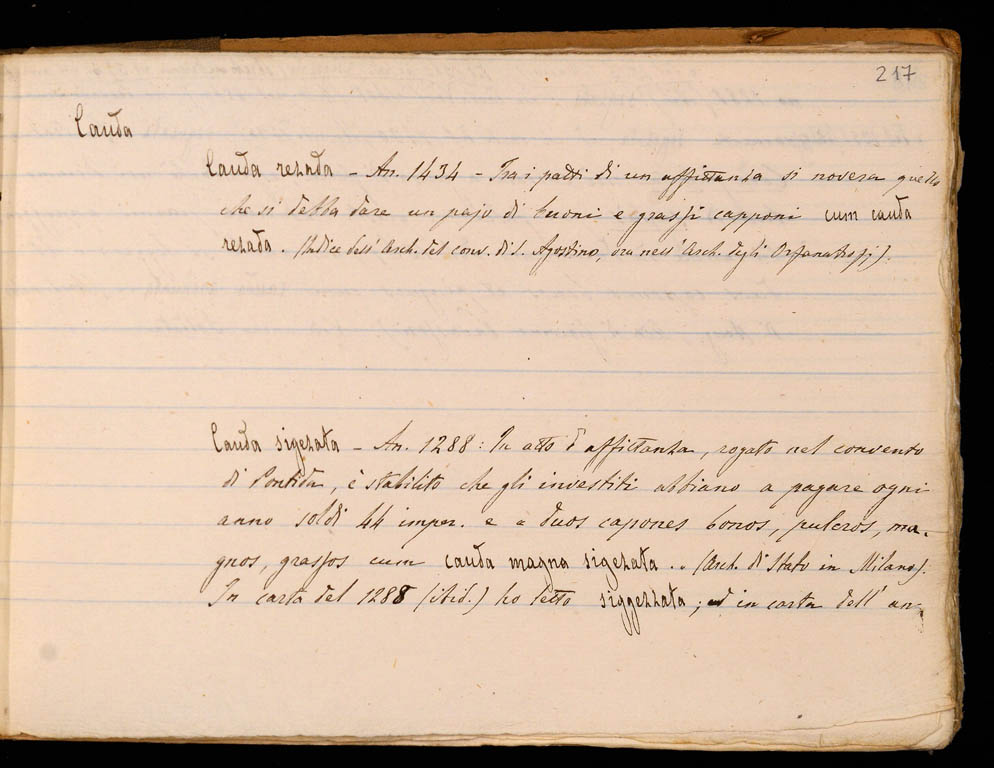 217
Cauda
Cauda rezada - An. 1434 - Tra i patti di un affittanza si novera quello
che si debba dare un pajo di buoni e grassi capponi cum cauda
rezada. (Indice dell' Arch. del conv. di S. Agostino, ora nell' Arch. degli Orfanatrofj).
Cauda sigezata - An. 1288: In atto d'affittanza, rogato nel convento
di Pontida, è stabilito che gli investiti abbiano a pagare ogni
anno soldi 44 imper. e « duos capones bonos, pulcros, ma-
gnos, grassos cum cauda magna sigezata .. (Arch. di Stato in Milano).
In carta del 1288 (ibid.) ho letto siggezzata; ed in carta dell' an-